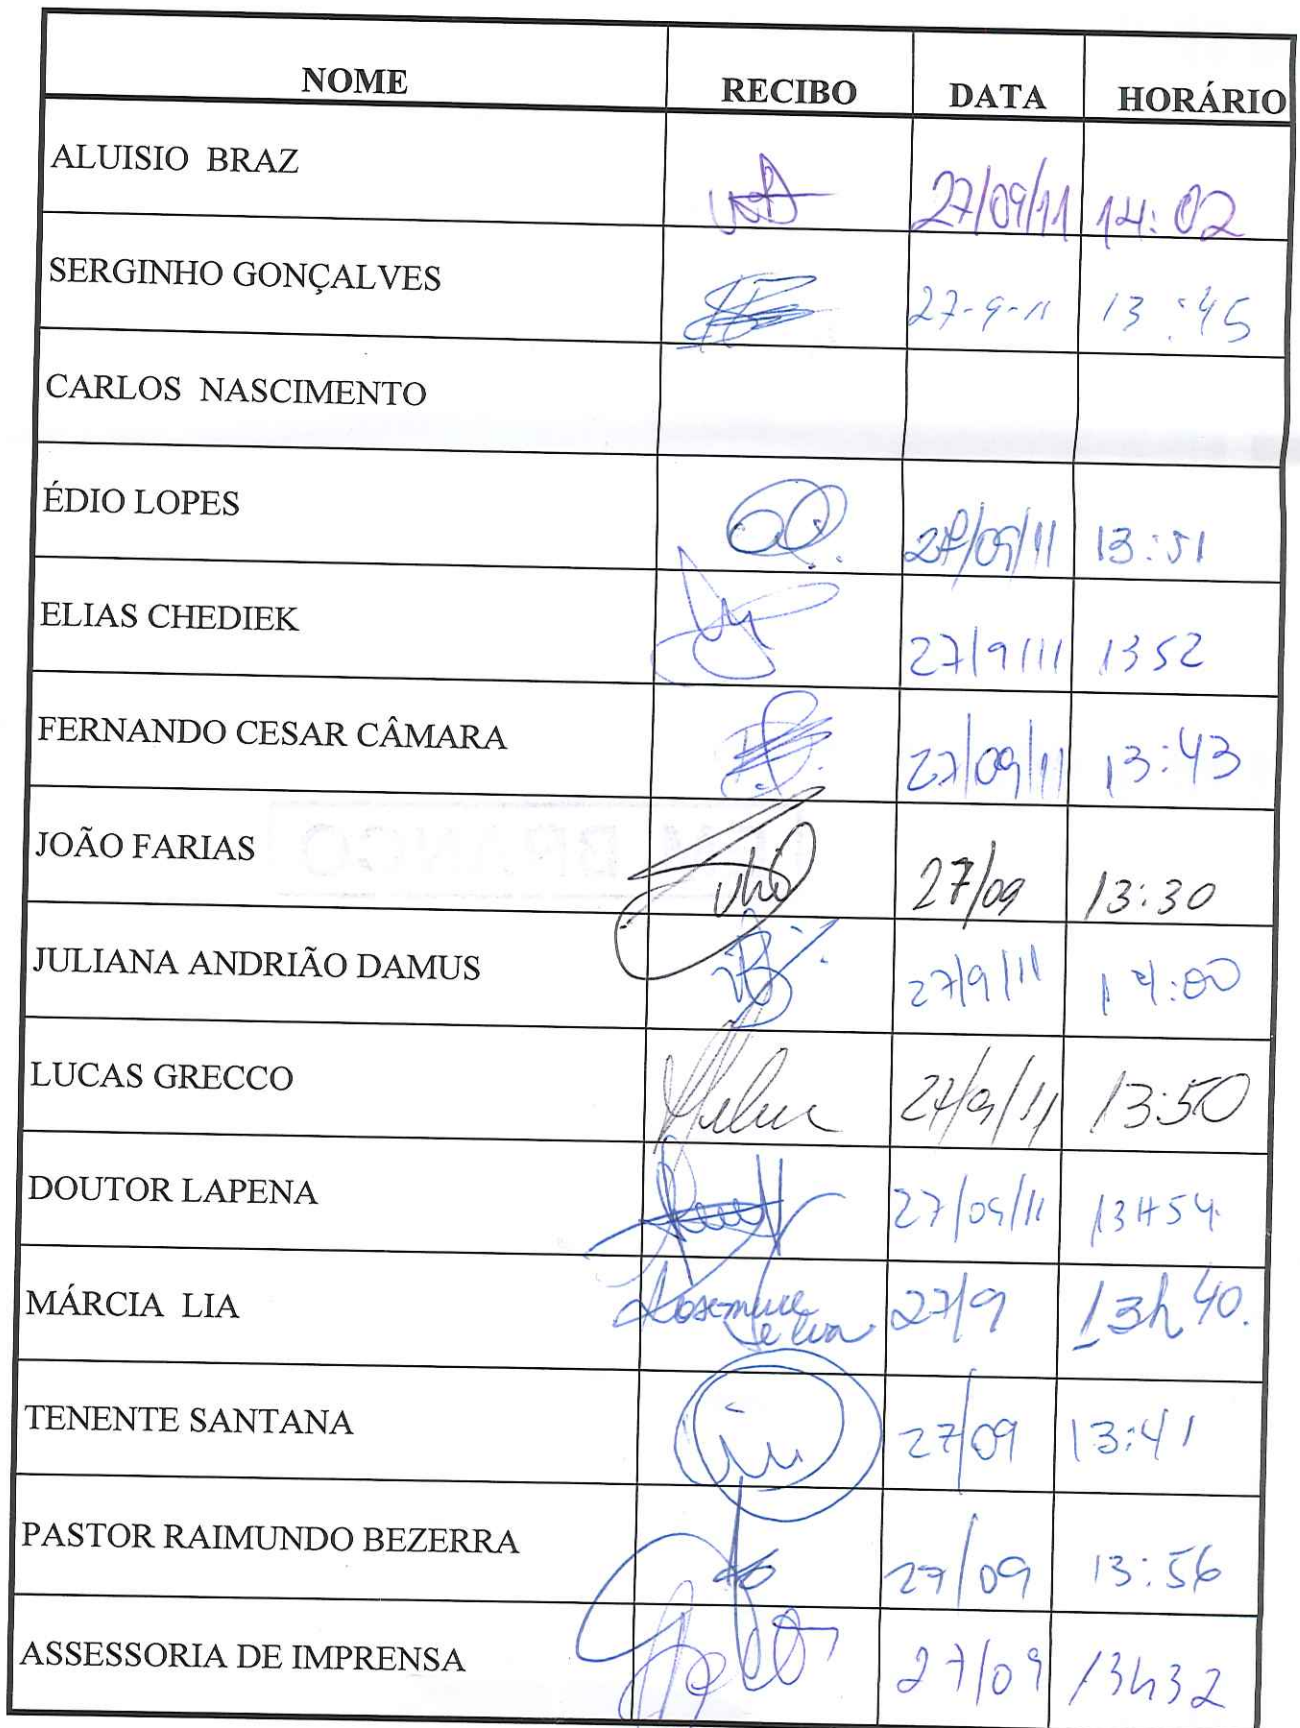 NOME RECIBO DATA HORÁRIO
ALUISIO BRAZ 27/09/11 14:02
SERGINHO GONÇALVES 27-9-11 13:45
CARLOS NASCIMENTO
ÉDIO LOPES 27/09/11 13:51
ELIAS CHEDIEK 27/9/11 1352
FERNANDO CESAR CÂMARA 27/09/11 13:43
JOÃO FARIAS 27/09 13:30
JULIANA ANDRIÃO DAMUS 27/9/11 14:00
LUCAS GRECCO 27/9/11 13:50
DOUTOR LAPENA 27/09/11 13H54.
MÁRCIA LIA 27/9 13h40.
TENENTE SANTANA 27/09 13:41
PASTOR RAIMUNDO BEZERRA 27/09 13:56
ASSESSORIA DE IMPRENSA 27/09 13h32